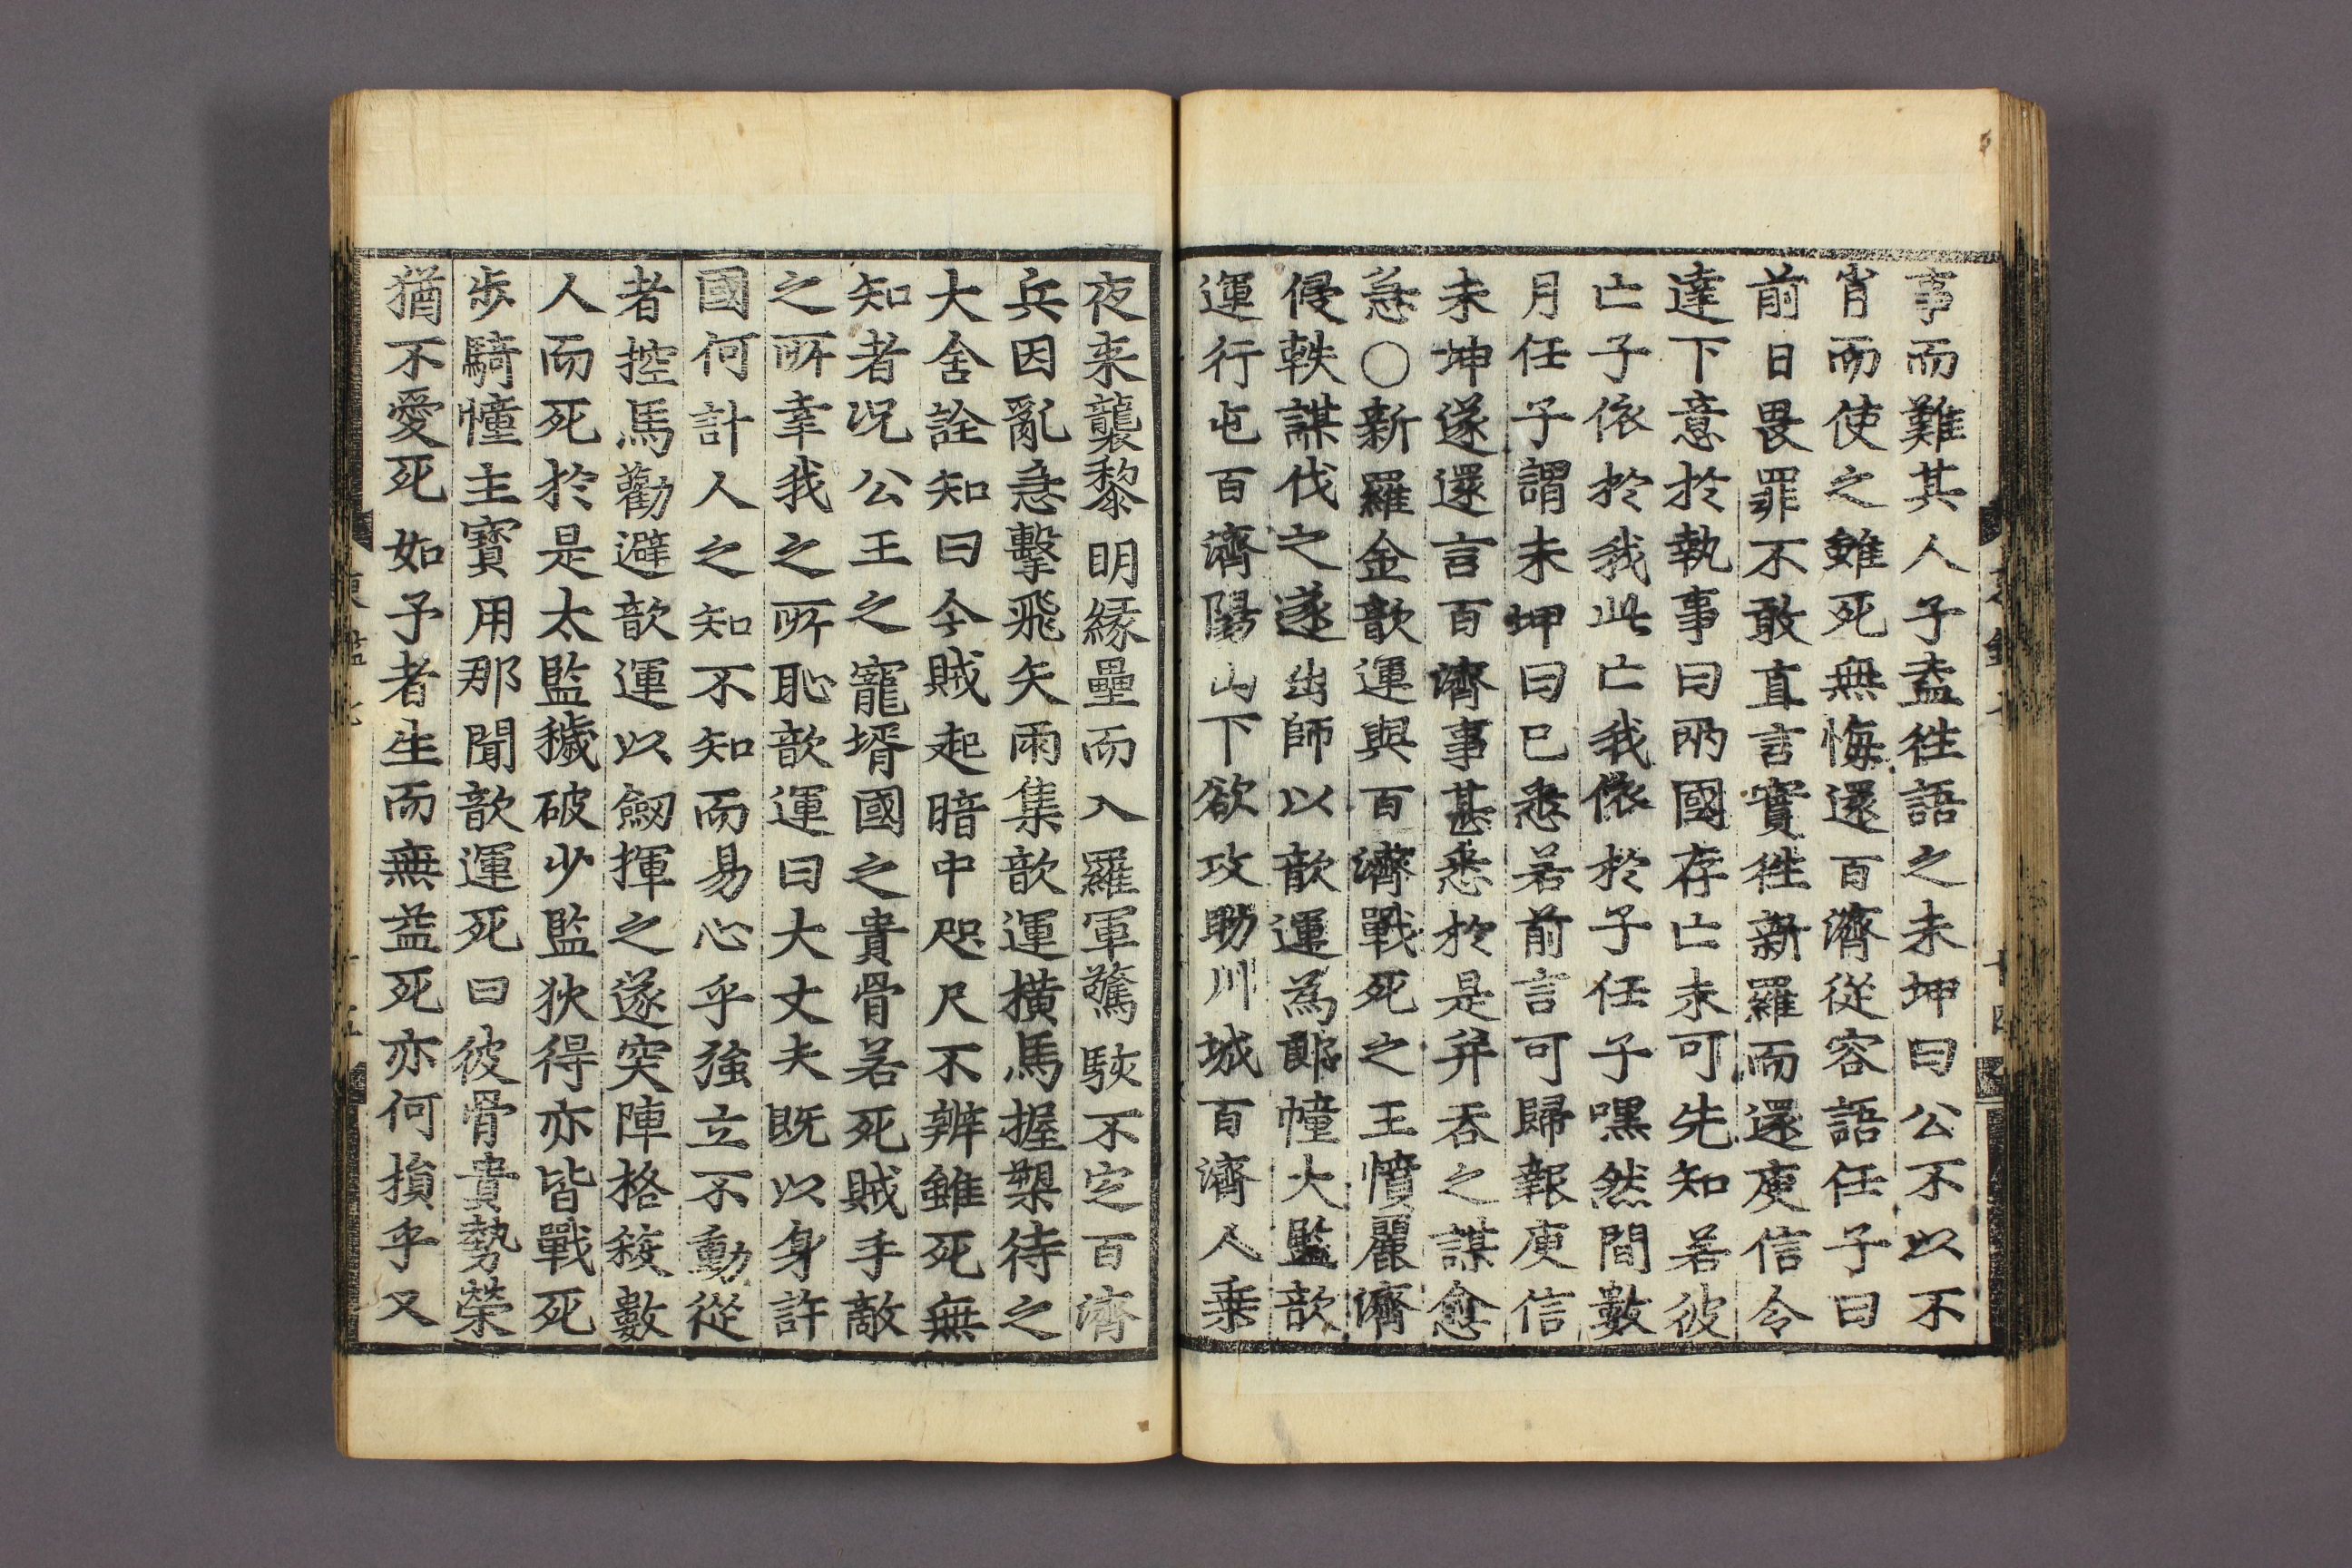 事而難其人子盍徃語之未坤曰公不以不
肖而使之雖死無悔還百濟從容語任子曰
前日畏罪不敢直言實徃新羅而還庾信令
達下意於執事曰兩國存亡未可先知若彼
亡子依於我此亡我依於子任子嘿然間數
月任子謂未坤曰已悉若前言可歸報庾信
未坤遂還言百濟事甚悉於是幷吞之謀愈
急○新羅金歆運與百濟戰死之王憤麗濟
侵軼謀伐之遂出師以歆運爲郎幢大監歆
運行屯百濟陽山下欲攻助川城百濟人乗
夜来襲黎明緣壘而入羅軍驚駭不定百濟
兵因亂急擊飛矢雨集歆運橫馬握槊待之
大舍詮知曰今賊起暗中咫尺不辨雖死無
知者况公王之寵壻國之貴骨若死賊手敵
之所幸我之所恥歆運曰大丈夫既以身許
國何計人之知不知而易心乎強立不動從
者控馬勸避歆運以劒揮之遂突陣格殺數
人而死於是太監穢破少監狄得亦皆戰死
步騎幢主寶用那聞歆運死曰彼骨貴勢榮
猶不愛死如予者生而無益死亦何損乎又